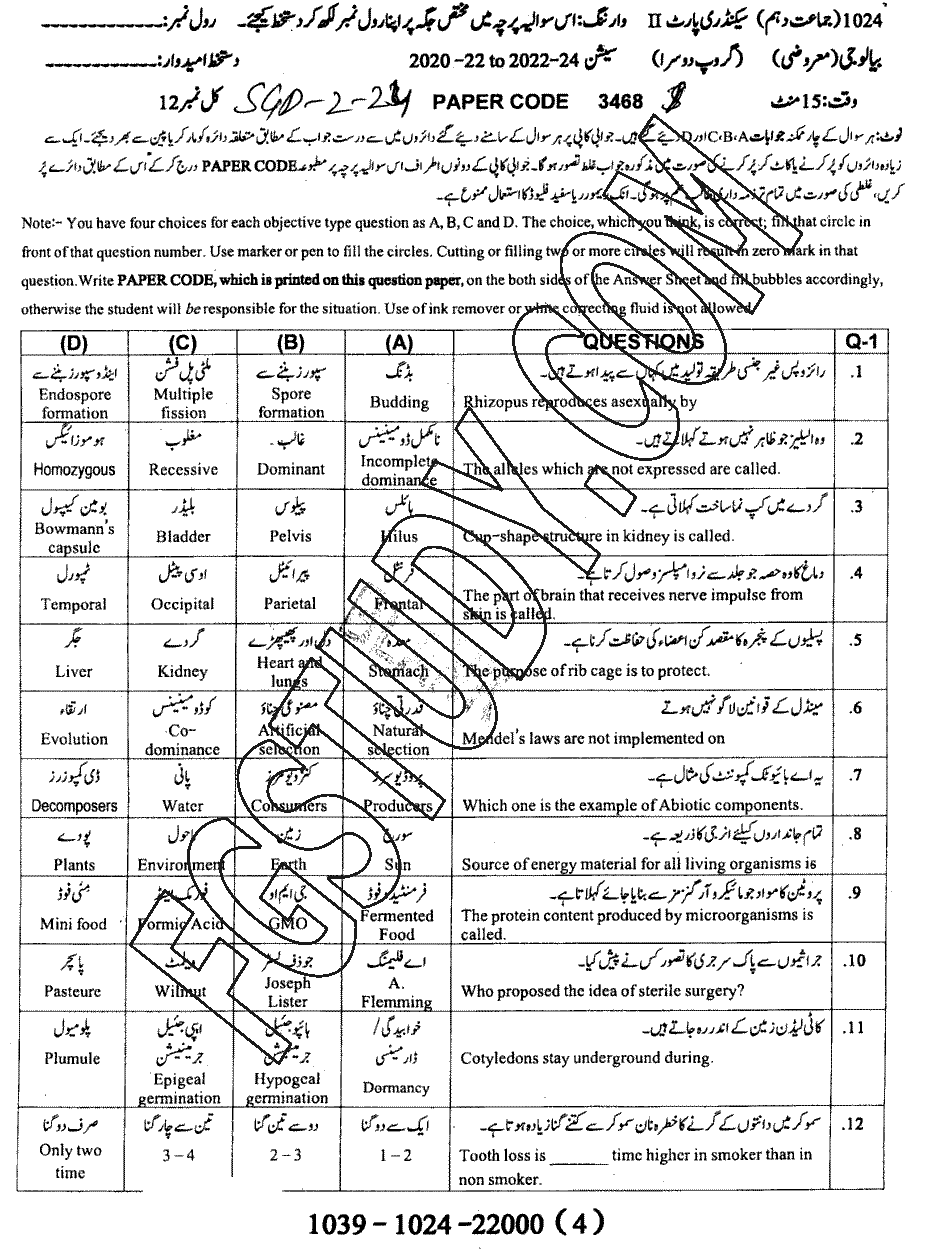 1024 (جماعت دہم) سیکنڈری پارٹ II وارننگ: اس سوالیہ پرچہ میں مختص جگہ پر اپنا رول نمبر لکھ کر دستخط کیجئے۔ رول نمبر:
بیالوجی (معروضی) (گروپ دوسرا) سیشن 2020 -22 to 2022-24 دستخط امیدوار:
وقت: 15 منٹ PAPER CODE 3468 SGD-2-24 کل نمبر 12
نوٹ: ہر سوال کے چار ممکنہ جوابات C،B،A اور D دیئے گئے ہیں۔ جوابی کاپی پر ہر سوال کے سامنے دیئے گئے دائروں میں سے درست جواب کے مطابق متعلقہ دائرہ کو مارکر یا پین سے بھر دیجئے۔ ایک سے
زیادہ دائروں کو پُر کرنے یا کاٹ کر پُر کرنے کی صورت میں مذکورہ جواب غلط تصور ہو گا۔ جوابی کاپی کے دونوں اطراف اس سوالیہ پرچہ پر مطبوعہ PAPER CODE درج کر کے اس کے مطابق دائرے پُر
کریں، غلطی کی صورت میں تمام تر ذمہ داری پر ہو گی۔ انک ریموور یا سفید فلیوڈ کا استعمال ممنوع ہے۔
Note:- You have four choices for each objective type question as A, B, C and D. The choice, which you think, is correct; fill that circle in
front of that question number. Use marker or pen to fill the circles. Cutting or filling two or more circles will result in zero mark in that
question.Write PAPER CODE, which is printed on this question paper, on the both sides of the Answer Sheet and fill bubbles accordingly,
otherwise the student will be responsible for the situation. Use of ink remover or white correcting fluid is not allowed.
(D) (C) (B) (A) QUESTIONS Q-1
اینڈوسپورز بننے سے ملٹی پل فشن سپورز بننے سے بڈنگ رائزوپس غیر جنسی طریقہ تولید میں کہاں سے پیدا ہوتے ہیں۔ .1
Endospore formation Multiple fission Spore formation Budding Rhizopus reproduces asexually by
ہوموزائیگس مغلوب غالب۔ نامکمل ڈومیننس وہ الیلیز جو ظاہر نہیں ہوتے کہلاتے ہیں۔ .2
Homozygous Recessive Dominant Incomplete dominance The alleles which are not expressed are called.
بومین کیپسول بلیڈر پیلوس ہائلس گردے میں کپ نما ساخت کہلاتی ہے۔ .3
Bowmann's capsule Bladder Pelvis Hilus Cup-shape structure in kidney is called.
ٹمپورل اوسی پیٹل پیرائیٹل فرنٹل دماغ کا وہ حصہ جو جلد سے نرو امپلسز وصول کرتا ہے۔ .4
Temporal Occipital Parietal Frontal The part of brain that receives nerve impulse from
skin is called.
جگر گردے دل اور پھیپھڑے معدہ پسلیوں کے پنجرہ کا مقصد کن اعضاء کی حفاظت کرنا ہے۔ .5
Liver Kidney Heart and lungs Stomach The purpose of rib cage is to protect.
ارتقاء کوڈومیننس مصنوعی چناؤ قدرتی چناؤ مینڈل کے قوانین لاگو نہیں ہوتے .6
Evolution Co-dominance Artificial selection Natural selection Mendel's laws are not implemented on
ڈی کمپوزرز پانی کنزیومرز پروڈیوسرز یہ اے بائیوٹک کمپوننٹ کی مثال ہے۔ .7
Decomposers Water Consumers Producers Which one is the example of Abiotic components.
پودے ماحول زمین سورج تمام جانداروں کیلئے انرجی کا ذریعہ ہے۔ .8
Plants Environment Earth Sun Source of energy material for all living organisms is
منی فوڈ فورمک ایسڈ جی ایم او فرمنٹیڈ فوڈ پروٹین کا مواد جو مائیکرو آرگنزمز سے بنایا جائے کہلاتا ہے۔ .9
Mini food Formic Acid GMO Fermented Food The protein content produced by microorganisms is
called.
پاسچر ولمٹ جوزف لسٹر اے فلیمنگ جراثیموں سے پاک سرجری کا تصور کس نے پیش کیا۔ .10
Pasteure Wilmut Joseph Lister A. Flemming Who proposed the idea of sterile surgery?
پلومیول ایپی جئیل جرمینیشن ہائپو جئیل جرمینیشن خوابیدگی/ ڈارمینسی کاٹی لیڈن زمین کے اندر رہ جاتے ہیں۔ .11
Plumule Epigeal germination Hypogeal germination Dormancy Cotyledons stay underground during.
صرف دو گنا تین سے چار گنا دو سے تین گنا ایک سے دو گنا سموکر میں دانتوں کے گرنے کا خطرہ نان سموکر سے کتنے گنا زیادہ ہوتا ہے۔ .12
Only two time 3 – 4 2 – 3 1 – 2 Tooth loss is ______ time higher in smoker than in
non smoker.
1039 – 1024 – 22000 (4)
FGSTUDY.COM